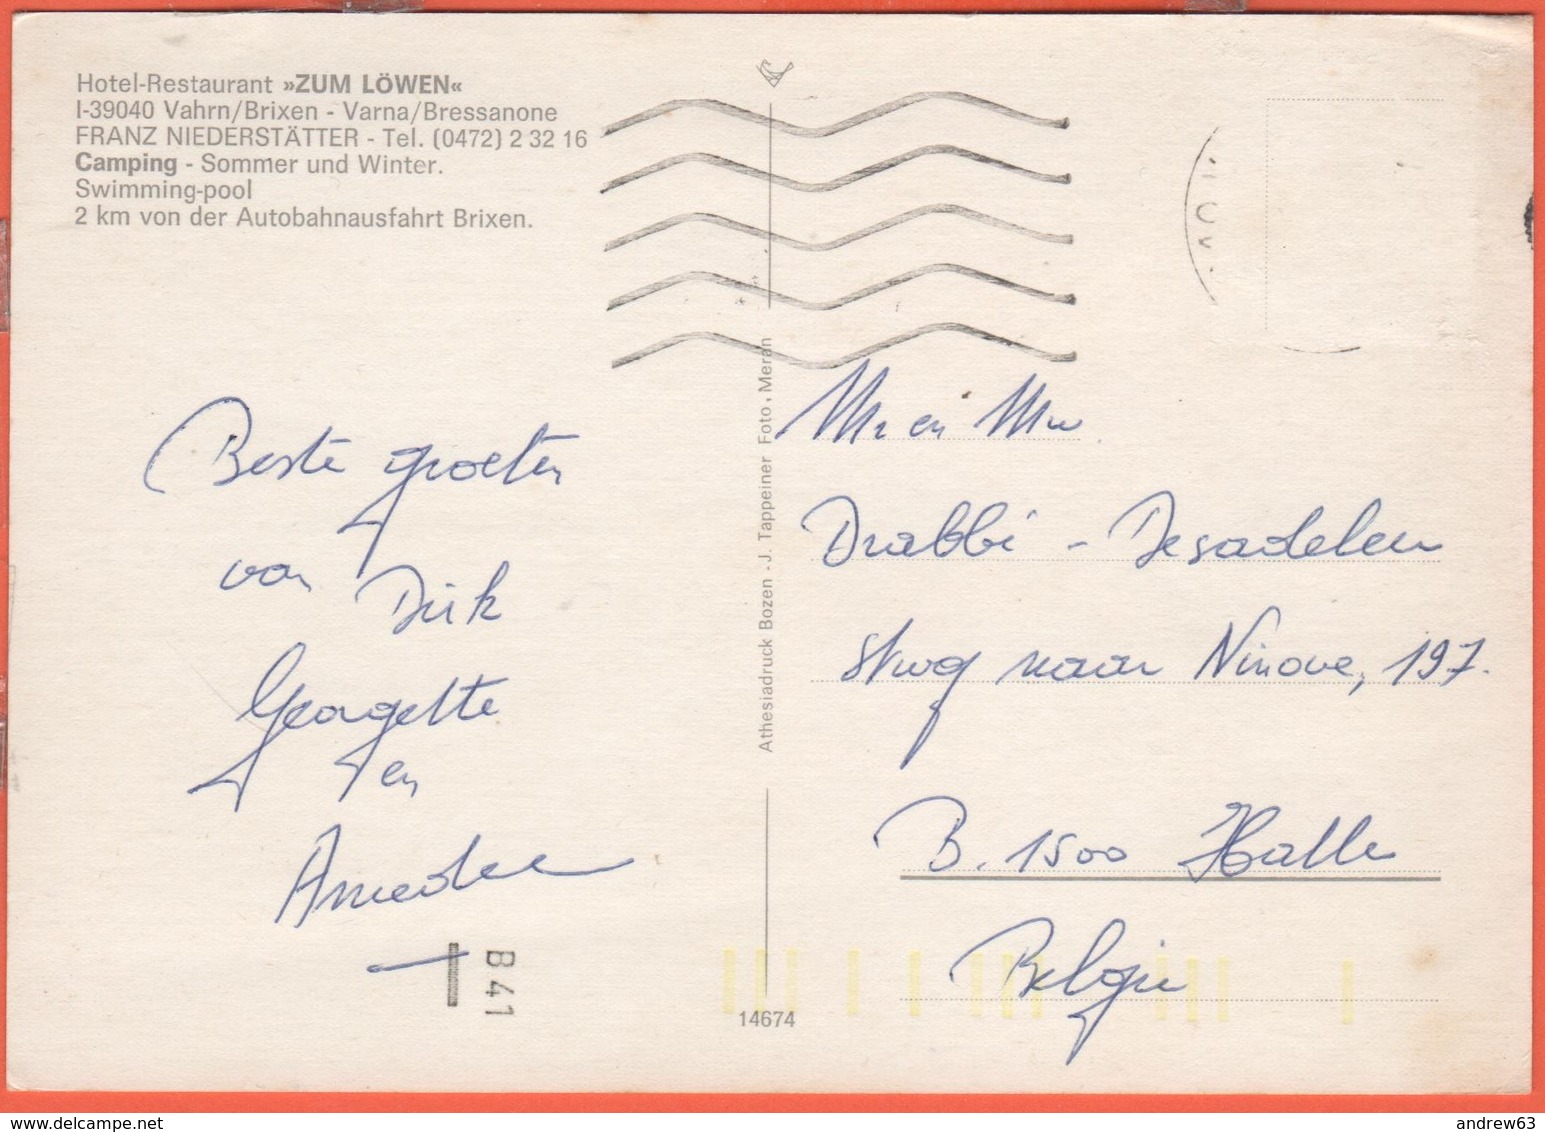 Hotel-Restaurant »ZUM LÖWEN«
I-39040 Vahrn/Brixen - Varna/Bressanone
FRANZ NIEDERSTÄTTER - Tel. (0472) 2 32 16
Camping - Sommer und Winter.
Swimming-pool
2 km von der Autobahnausfahrt Brixen.
Beste groeten
van Dirk
Georgette
en
Amedee
B 41
Athesiadruck Bozen - J. Tappeiner Foto, Meran
14674
Mr en Mw
Drabbi - Desadeleer
Stwg naar Ninove, 197.
B. 1500 Halle
Belgie
andrew63